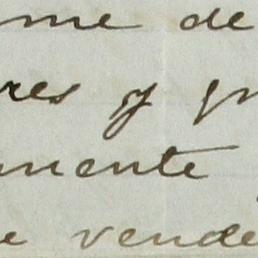 me de
res y
mente
e vende